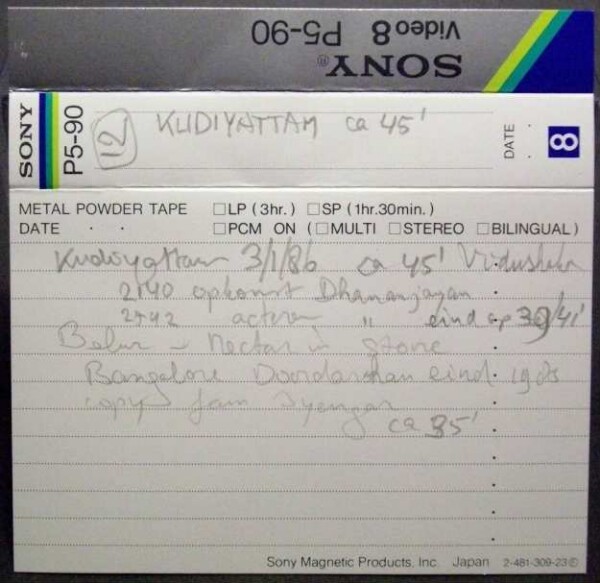 Video 8 P5-90
SONY®
SONY P5-90 12 KUDIYATTAM ca 45' DATE 8
METAL POWDER TAPE □LP (3hr.) □SP (1hr.30min.)
DATE . . □PCM ON (□MULTI □STEREO □BILINGUAL)
Kudiyattam 3/1/86 ca 45' Vidushaka
2140 opkomst Dhananjayan
2242 acteren " eind op 39/41'
Belur - Nectar in Stone
Bangalore Doordarshan eind 1985
copy from Iyengar
ca 35'
Sony Magnetic Products, Inc. Japan 2-481-309-23①